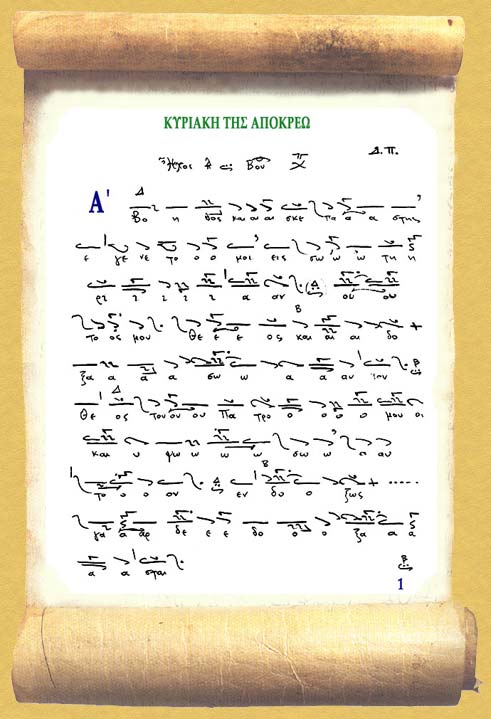 ΚΥΡΙΑΚΗ ΤΗΣ ΑΠΟΚΡΕΩ
Δ.Π.
Ἦχος Βου
Α'
Βο η θος και αι αι σκε πα α α στης
ε γε νε το ο ο μοι εις σω ω ω τη η
ρι ι ι ι ι α αν ου ου
το ος μου Θε ε ε ος και αι αι δο
ξα α α α σω ω α α α αν τον
Θε ος του ου ου Πα τρο ο ο ο ο μου οι
και υ ψω ω ω ω σω ω αυ
το ο ο ον εν δο ο ξως
γα α αρ δε ε ε δο ο ο ξα α α
α α σται
1